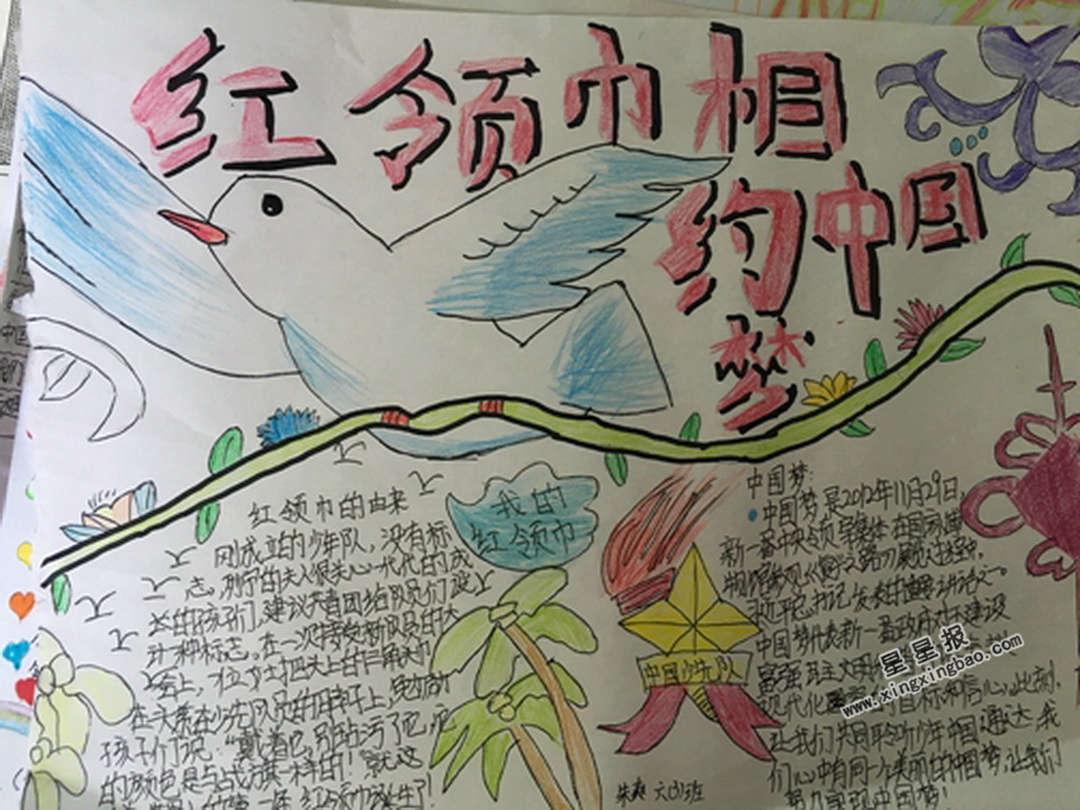 红领巾相
约中国
梦
我的
红领巾
红领巾的由来
刚成立的少年队，没有标
志。列宁的夫人很关心一代代的成
长的孩子们，建议共青团给队员们设
计一种标志。在一次接受新队员的大
会上，一位女士把头上的三角头巾
在大家在少先队员的
孩子们说："戴着它，别玷污了它，它
的颜色是与战旗一样的！"就这
红领巾诞生了！
中国梦：
中国梦是2012年11月29日，
新一届中央领导集体在国家博
物馆参观《复兴之路》展览过程中，
总书记发表的重要讲话
中国梦代表新一届政府对建设
富强民主文明
现代化目标和信心，此刻，
让我们共同聆听少年中国
们心中有同一个美丽的中国梦，让我们
努力实现中国梦！
中国少先队
朱爽 六(3)班
星星报
www.xingxingbao.com